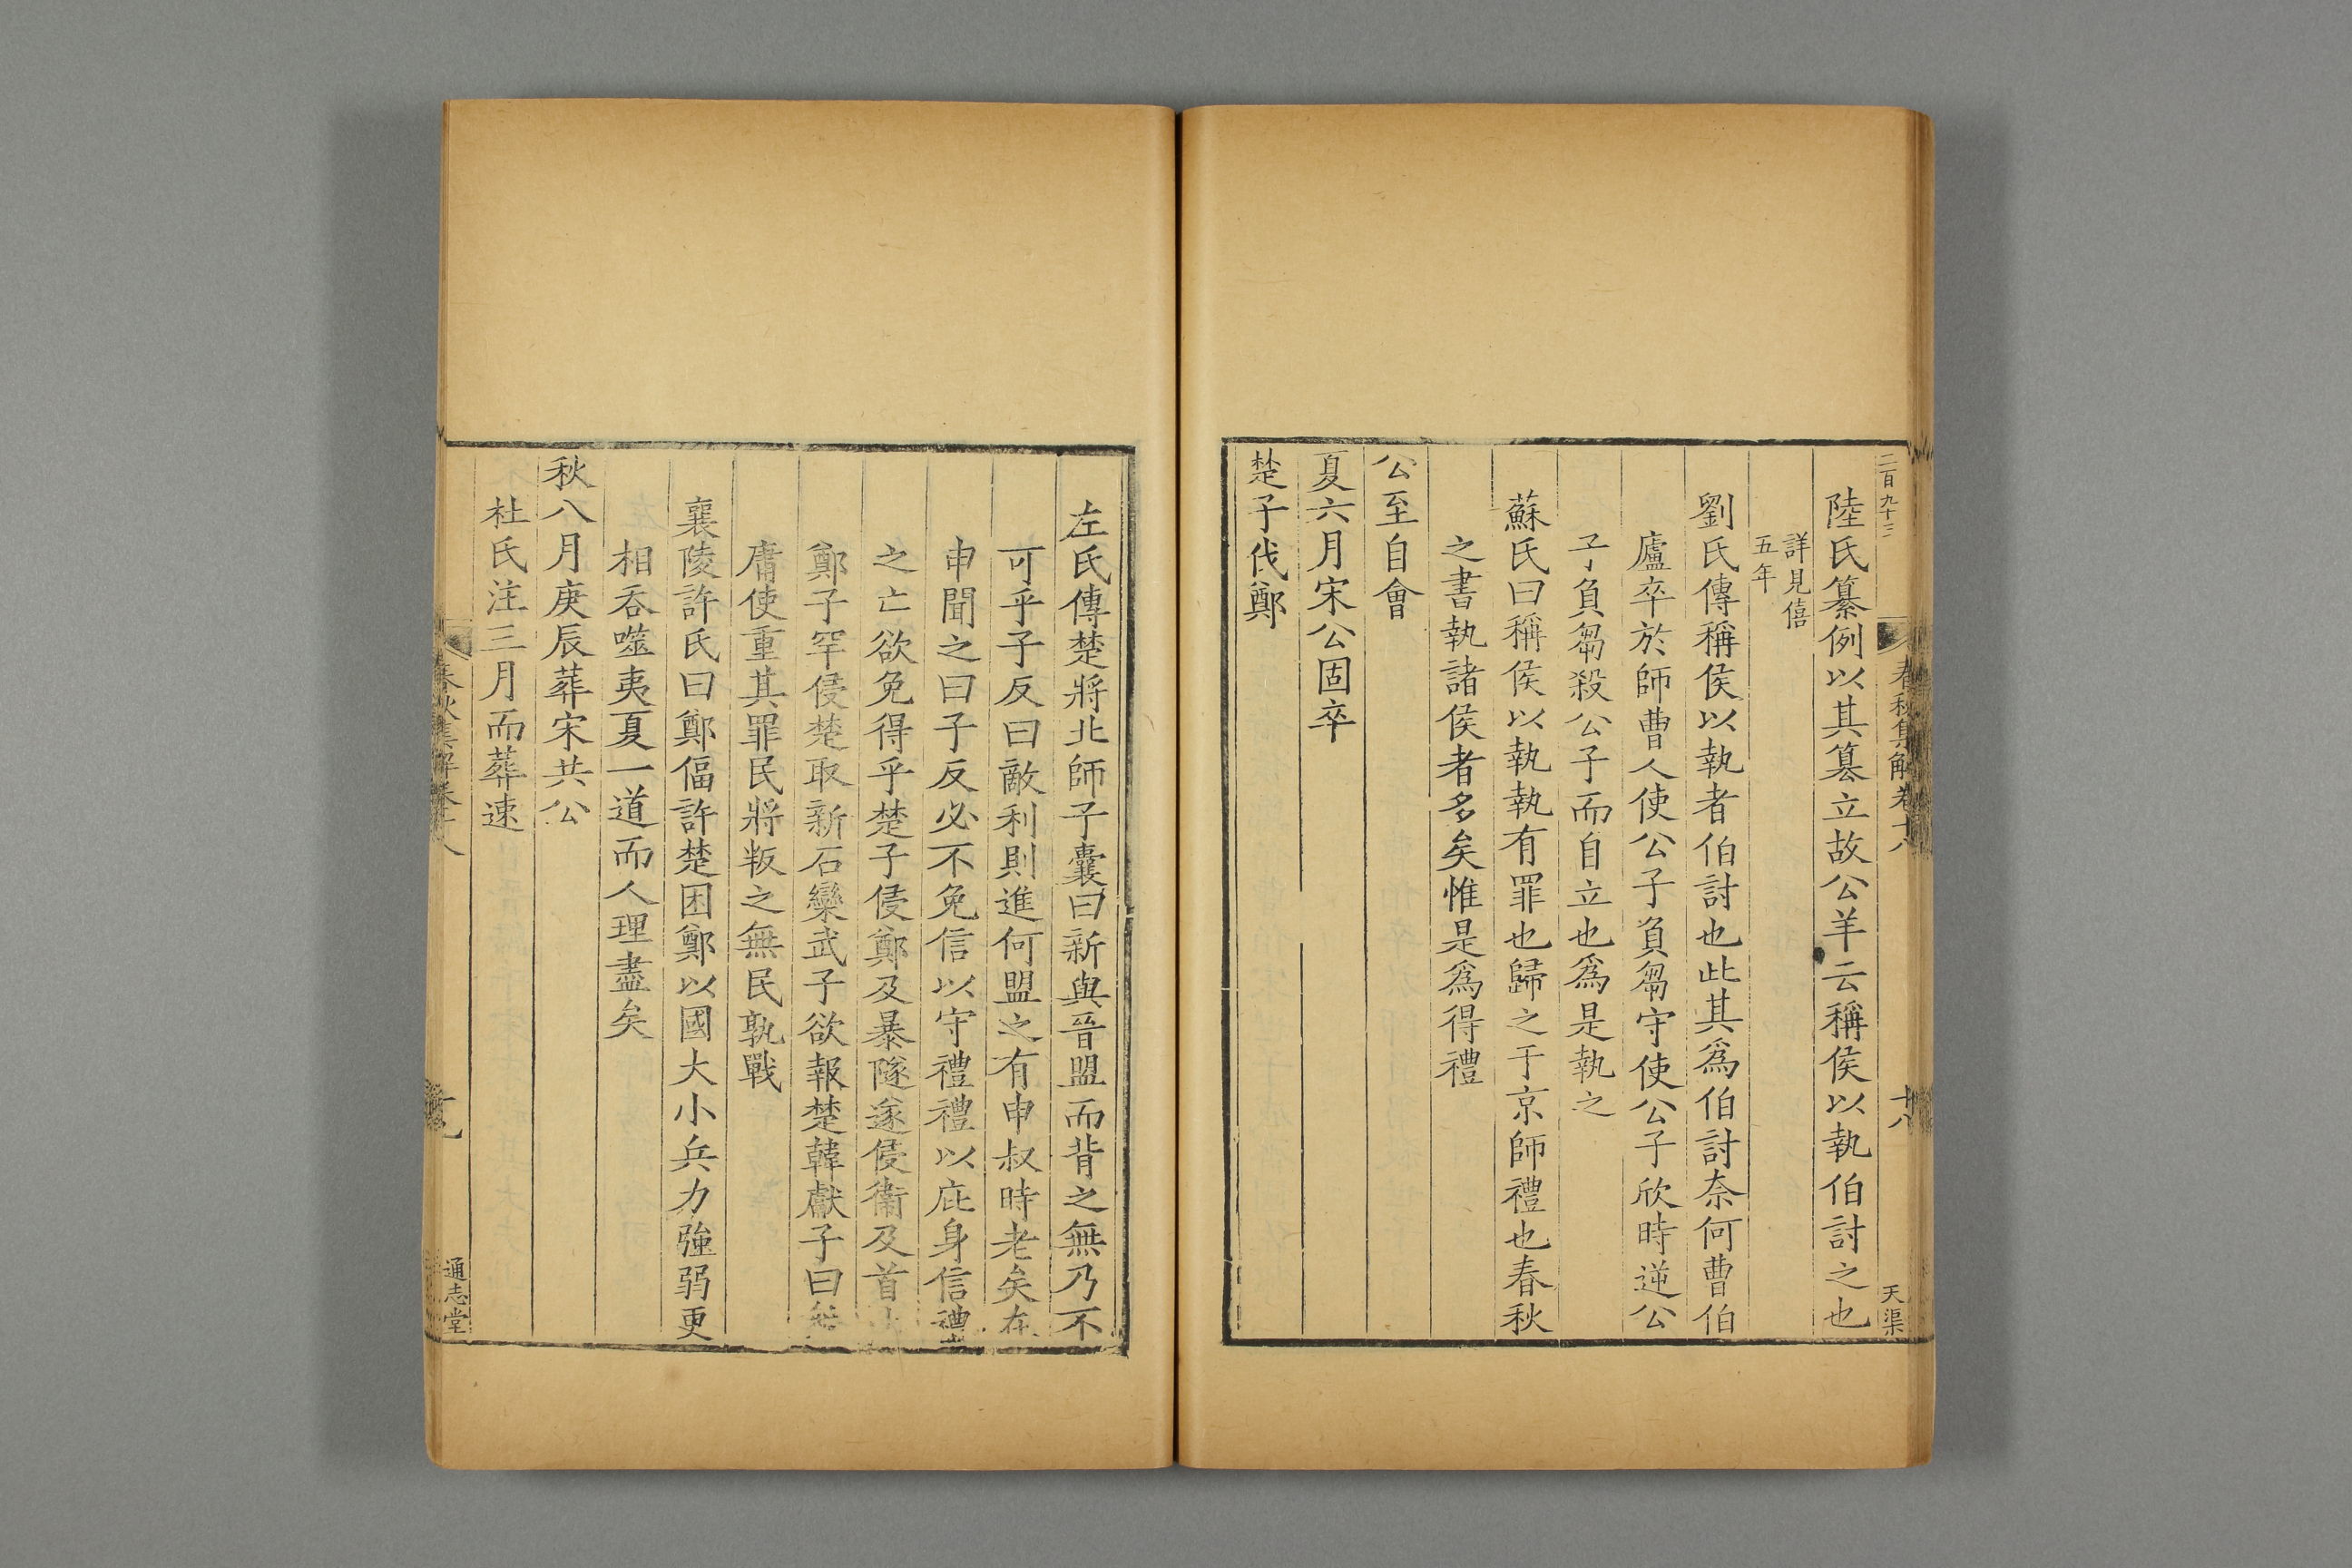 二百九十三
春秋集解卷十八
十八
天渠
陸氏纂例以其篡立故公羊云稱侯以執伯討之也
詳見僖
五年
劉氏傳稱侯以執者伯討也此其為伯討奈何曹伯
廬卒於師曹人使公子負芻守使公子欣時逆公
子負芻殺公子而自立也為是執之
蘇氏曰稱侯以執執有罪也歸之于京師禮也春秋
之書執諸侯者多矣惟是為得禮
公至自會
夏六月宋公固卒
楚子伐鄭
左氏傳楚將北師子囊曰新與晉盟而背之無乃不
可乎子反曰敵利則進何盟之有申叔時老矣在
申聞之曰子反必不免信以守禮禮以庇身信禮
之亡欲免得乎楚子侵鄭及暴隧遂侵衞及首止
鄭子罕侵楚取新石欒武子欲報楚韓獻子曰無
庸使重其罪民將叛之無民孰戰
襄陵許氏曰鄭偪許楚困鄭以國大小兵力強弱更
相吞噬夷夏一道而人理盡矣
秋八月庚辰葬宋共公
杜氏注三月而葬速
春秋集解卷十八
十九
通志堂